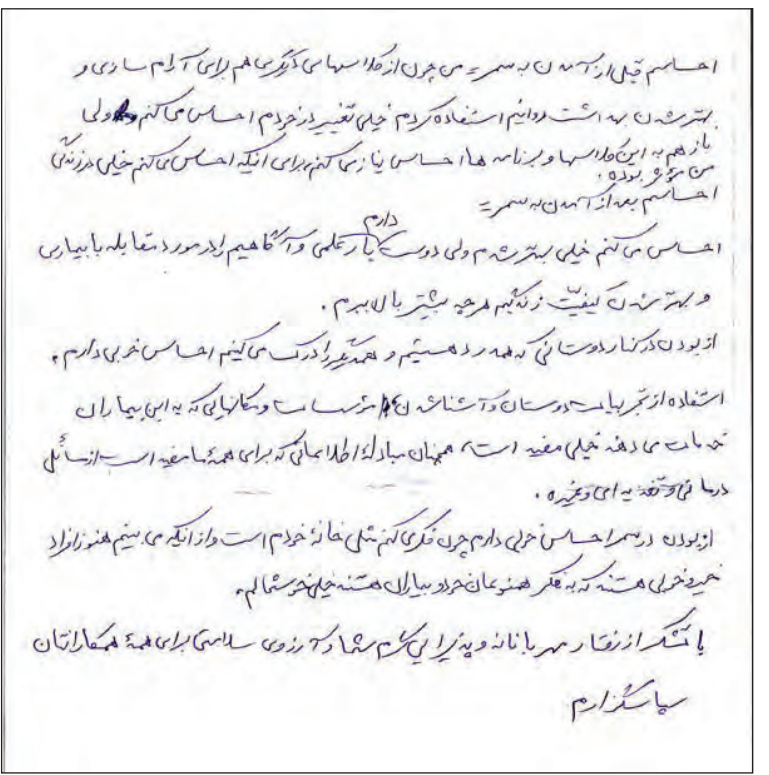 احساسم قبل از آمدن به سمر = من چون از کلاسهای دیگری هم برای آرام سازی و
بهتر شدن بهداشت روانیم استفاده کردم خیلی تغییر در خودم احساس می کنم ولی
باز هم به این کلاسها و برنامه ها احساس نیاز می کنم، برای اینکه احساس می کنم خیلی در زندگی
من مؤثر بوده.
احساسم بعد از آمدن به سمر =
احساس می کنم خیلی بهتر شدم ولی دوست دارم بار علمی و آگاهیم را در مورد مقابله با بیماری
و بهتر شدن کیفیت زندگیم هرچه بیشتر بالا ببرم.
از بودن در کنار دوستانی که همدرد هستیم و همدیگر را درک می کنیم احساس خوبی دارم.
استفاده از تجربیات دوستان و آشنا شدن با مؤسسات و مکانهایی که به این بیماران
خدمات می دهد خیلی مفید است، همچنان مبادلهٔ اطلاعاتی که برای همهٔ ما مفید است از مسائل
درمانی و تغذیه ای و غیره.
از بودن در سمر احساس خوبی دارم چون فکر می کنم مثل خانهٔ خودم است و از اینکه می بینم هنوز افراد
خیر و خوبی هستند که به فکر همنوعان خود و بیماران هستند خیلی خوشحالم.
با تشکر از رفتار مهربانانه و پذیرایی گرم شما و آرزوی سلامتی برای همهٔ همکارانتان
سپاسگزارم